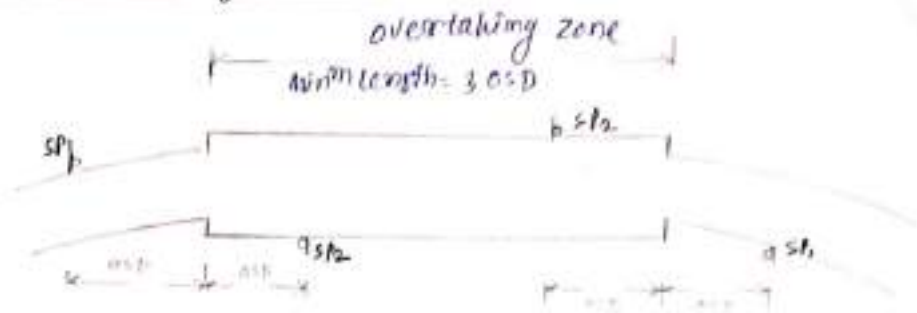 overtaking zone
minm length = 3 OSD
SP1
SP2
SP2
SP1
OSD OSD